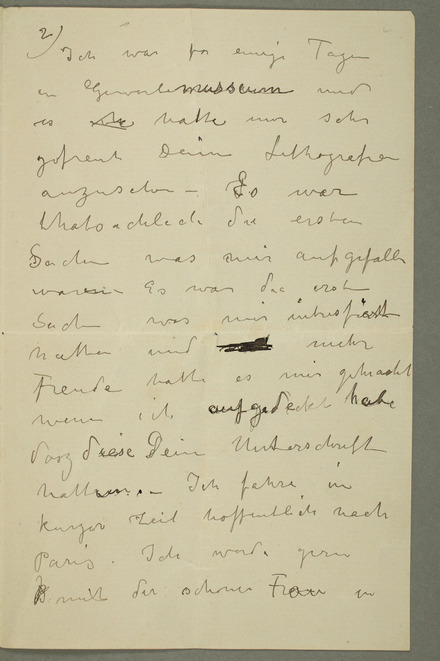 2)
Ich war for einige Tagen
in Gewerbemusseum und
es hatte mir sehr
gefreut Deine Lithografien
anzusehen – Es war
thatsachlich die ersten
Sachen was mir aufgefalle
waren Es war die erste
Sache was mir
hatten und mehr
Freude hatte es mir gemacht
wenn ich aufgedeckt habe
das diese Dein Unterschrift
hatten. – Ich fahre in
kurzer Zeit hoffentlich nach
Paris. Ich werde gern
mit der schönen Frau in